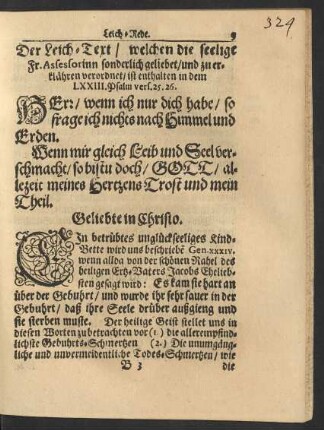 324
Leich-Rede. 9
Der Leich-Text / welchen die seelige
Fr. Assessorinn sonderlich geliebet / und zu er-
klähren verordnet / ist enthalten in dem
LXXIII. Psalm vers. 25. 26.
HErr / wenn ich nur dich habe / so
frage ich nichts nach Himmel und
Erden.
Wenn mir gleich Leib und Seel ver-
schmacht / so bistu doch / GOTT / al-
lezeit meines Hertzens Trost und mein
Theil.
Geliebte in Christo.
EIn betrübtes unglückseeliges Kind-
Bette wird uns beschriebē Gen. xxxiv.
wenn allda von der schönen Rahel des
heiligen Ertz-Vaters Jacobs Eheliebs-
ten gesagt wird: Es kam sie hart an
über der Gebuhrt / und wurde ihr sehr sauer in der
Gebuhrt / daß ihre Seele drüber außgieng und
sie sterben muste. Der heilige Geist stellet uns in
diesen Worten zu betrachten vor (1.) die allerempfind-
lichste Gebuhrts-Schmertzen (2.) Die unumgäng-
liche und unvermeidentliche Todes-Schmertzen / wie
B 3 die